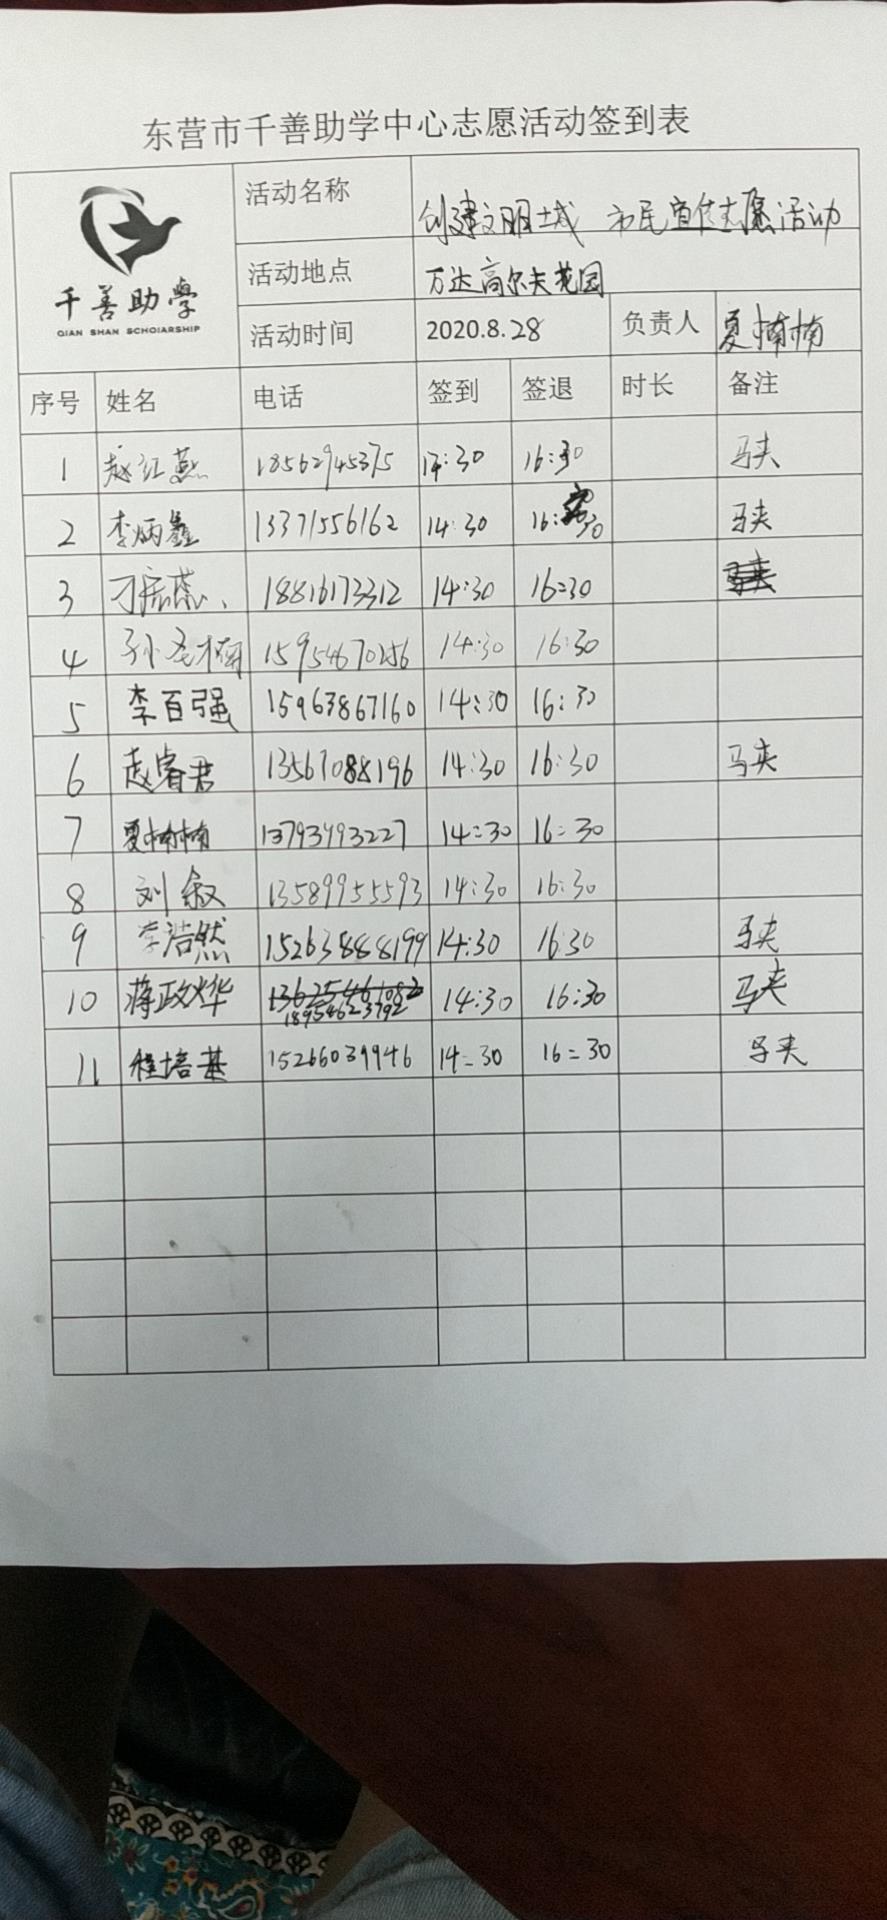 东营市千善助学中心志愿活动签到表
千善助學
QIAN SHAN SCHOIARSHIP
活动名称 创建文明城 市民宣传志愿活动
活动地点 万达高尔夫花园
活动时间 2020.8.28 负责人 夏楠楠
序号 姓名 电话 签到 签退 时长 备注
1 赵红燕 18562945375 14:30 16:30 马夹
2 李炳鑫 13371556162 14:30 16:30 马夹
3 18816173312 14:30 16:30
4 孙圣楠 15954670256 14:30 16:30
5 李百强 15963867160 14:30 16:30
6 赵睿君 13561088196 14:30 16:30 马夹
7 夏楠楠 13793493227 14:30 16:30
8 刘叙 13589955593 14:30 16:30
9 李浩然 15263888199 14:30 16:30 马夹
10 蒋政烨 18954623792 14:30 16:30 马夹
11 程培基 15266039946 14:30 16:30 马夹